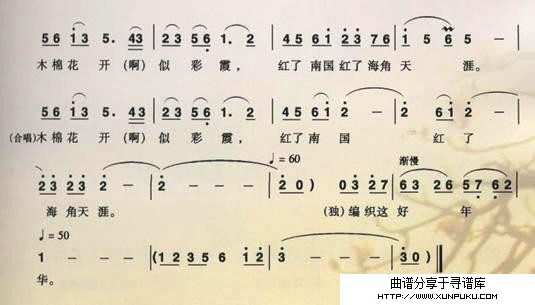 5 6 i 3 5. 4 3 | 2 3 5 6 1. 2 | 4 5 6 1 2 3 7 6 | 1 5 6 5 - |
木棉花 开 (啊) 似 彩 霞， 红了南国红了海角天 涯。
5 6 i 3 5. 4 3 | 2 3 5 6 1. 2 | 4 5 6 1 2 - | 2 6 1 2 - |
(合唱)木棉花 开 (啊) 似 彩 霞， 红了南 国 红 了
♩= 60 渐慢
2 3 2 3 2 - - | 2 - - - | 2 0 ) 0 3 2 7 | 6 3 2 6 5 7 6 2 |
海 角天 涯。 (独)编 织这 好 年
♩= 50
1 - - - | (1 2 3 5 6 i 2 | 3 - - - | 3 0 ) ‖
华。
曲谱分享于寻谱库
WWW.XUNPUKU.COM